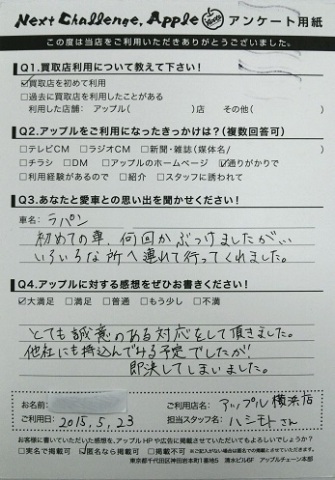 Next Challenge, Apple アンケート用紙
この度は当店をご利用いただきありがとうございました。
Q1.買取店利用について教えて下さい!
☑買取店を初めて利用
□過去に買取店を利用したことがある
利用した店舗: アップル( )店 その他( )
Q2.アップルをご利用になったきっかけは?(複数回答可)
□テレビCM □ラジオCM □新聞・雑誌(媒体名/ )
□チラシ □DM □アップルのホームページ ☑通りがかりで
□利用経験があるので □紹介 □スタッフに誘われて
Q3.あなたと愛車との思い出を聞かせください!
車名: ラパン
初めての車、何回かぶつけましたが…
いろいろな所へ連れて行ってくれました。
Q4.アップルに対する感想をぜひお書きください!
☑大満足 □満足 □普通 □もう少し □不満
とても誠意のある対応をして頂きました。
他社にも持込んでみる予定でしたが!
即決してしまいました。
お名前 ご利用店名: アップル横浜店
ご利用日: 2015.5.23 担当スタッフ名: ハシモトさん
お客様に書いていただいた感想を、アップルHPや広告に掲載させていただいてもよろしいでしょうか?
□実名で掲載可 ☑匿名なら掲載可 □掲載不可 ※ご記入がない場合は匿名での掲載とさせていただきます。
東京都千代田区神田岩本町1番地5 清水ビル6F アップルチェーン本部